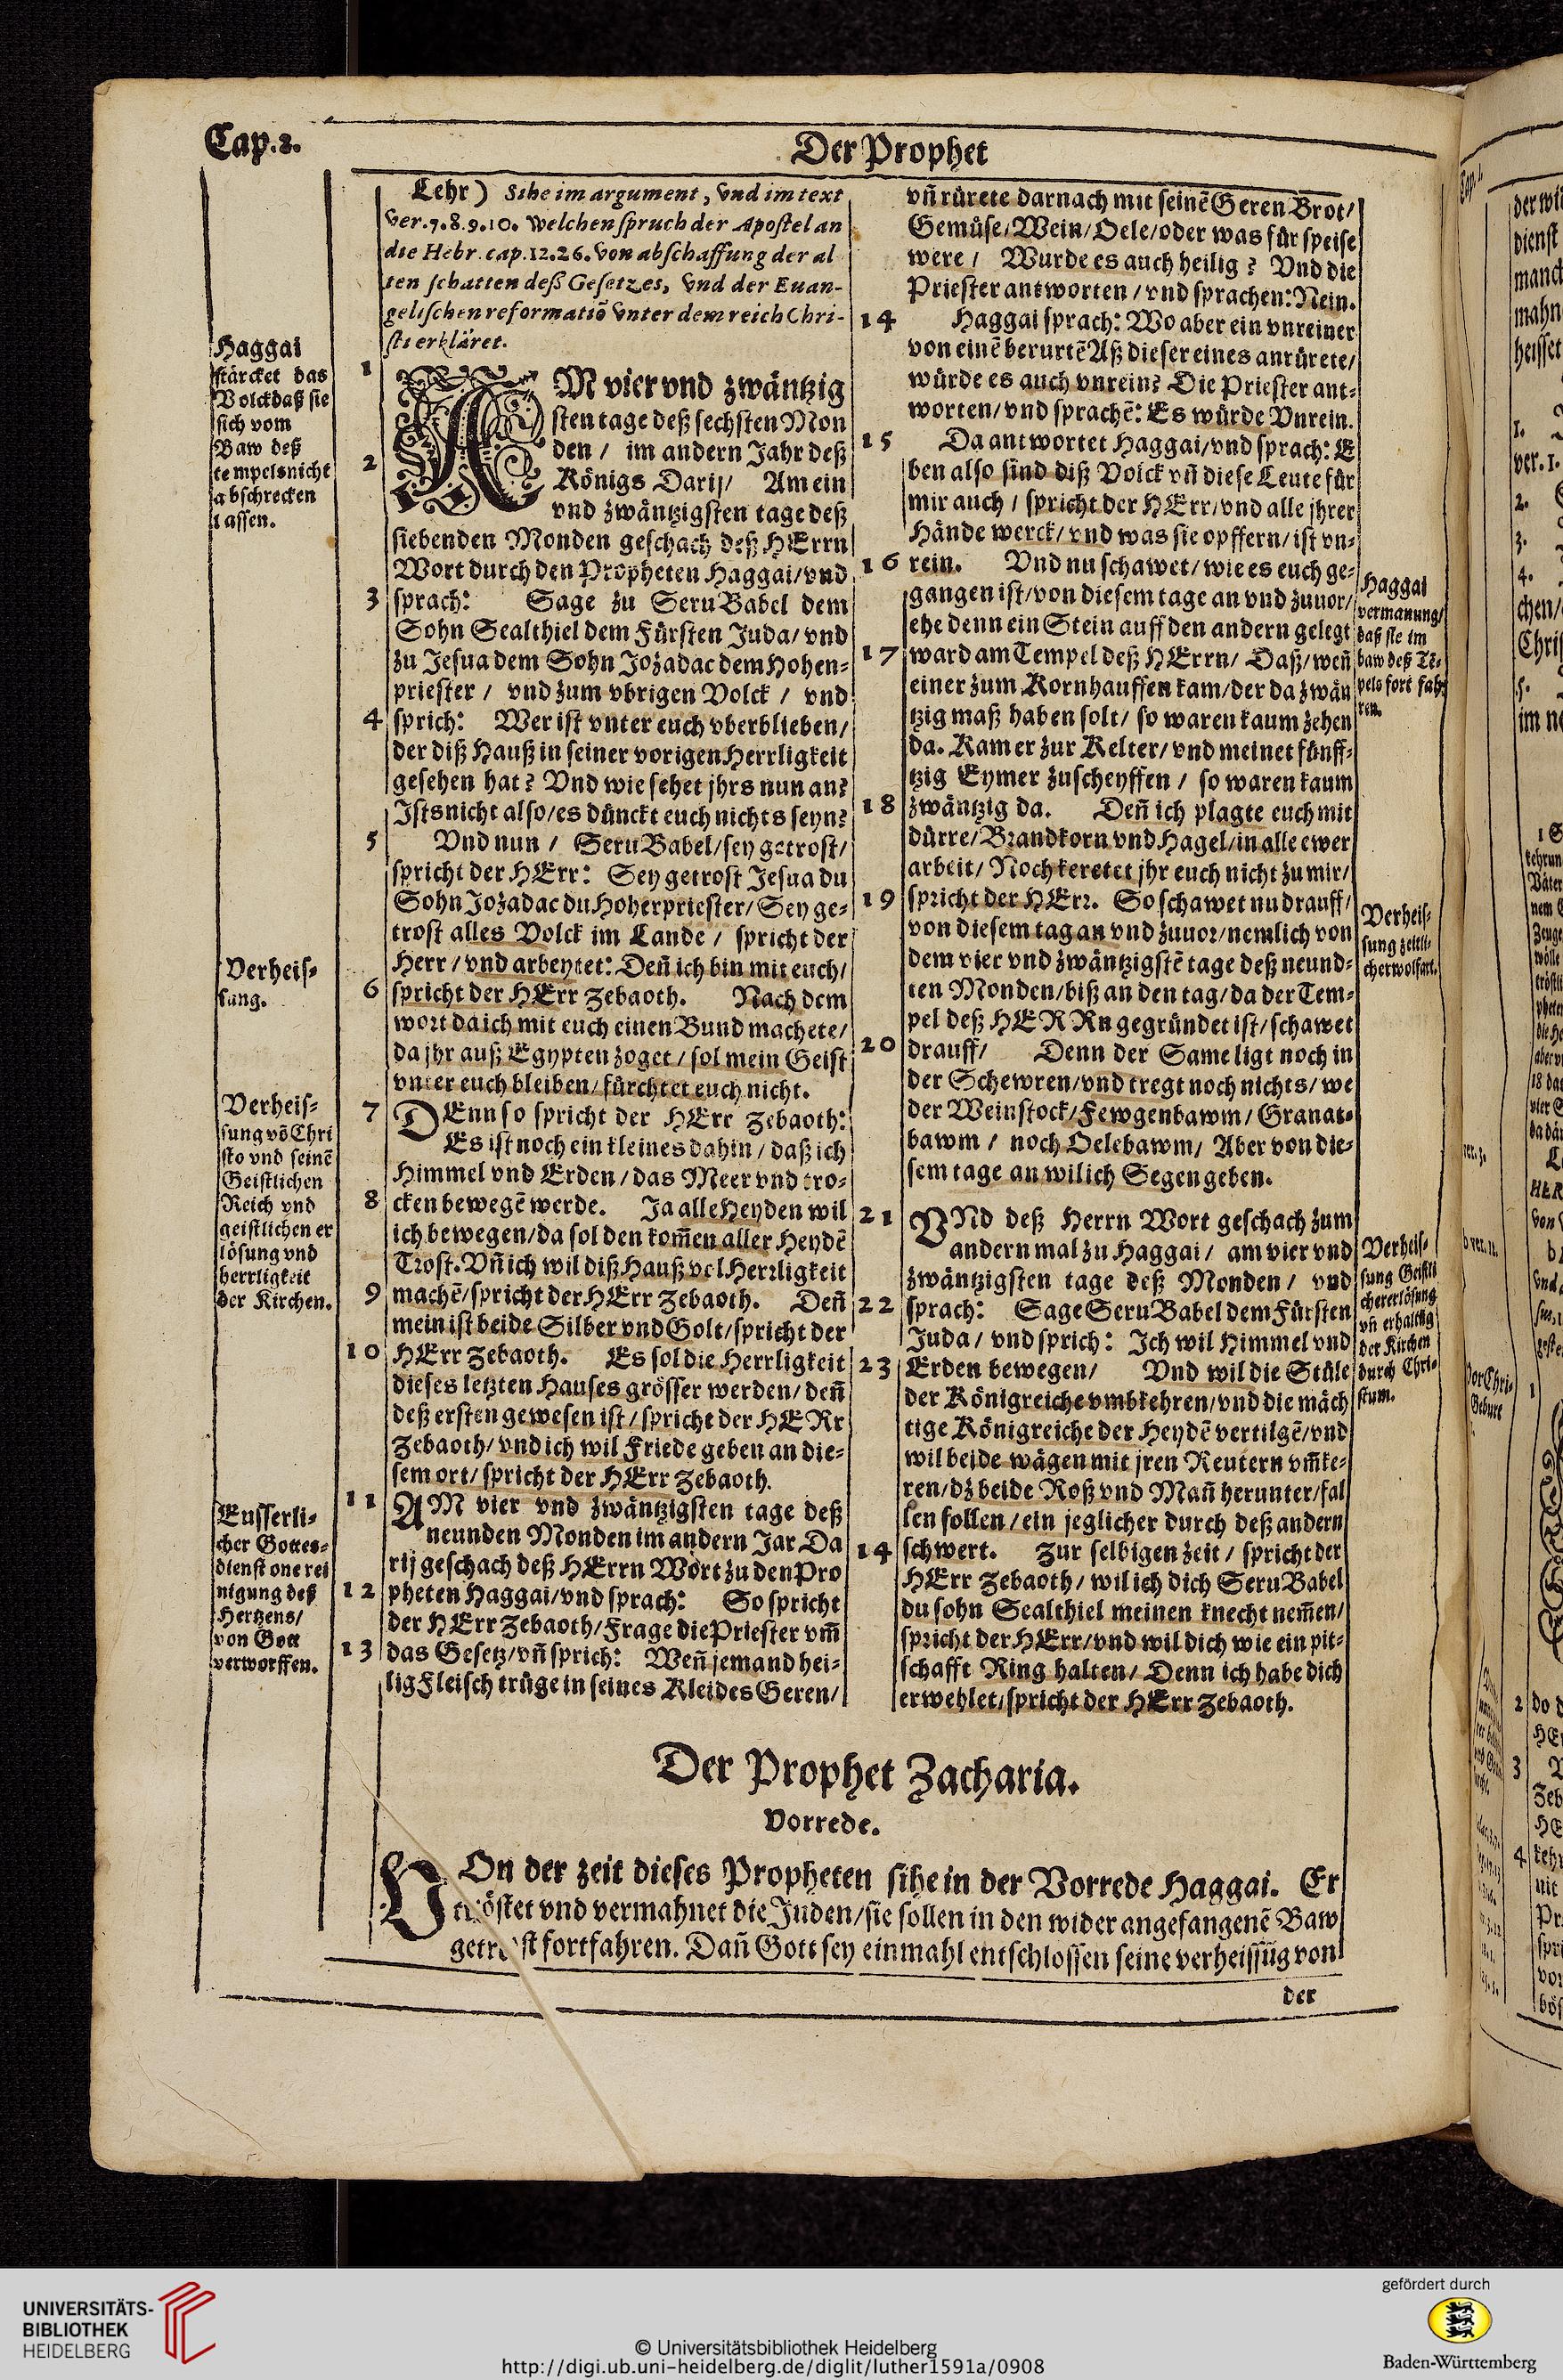 Cap.2.
Der Prophet
Lehr) Sihe im argument, vnd im text
ver.7.8.9.10. Welchen spruch der Apostel an
die Hebr. cap.12.26. von abschaffung der al
ten schatten deß Gesetzes, vnd der Euan-
gelischen reformatiõ vnter dem reich Chri-
sti erkläret.
Haggai
stärcket das
Volck daß sie
sich vom
Baw deß
tempels nicht
abschrecken
lassen.
1
AM vier vnd zwäntzig
sten tage deß sechsten Mon
den / im andern Jahr deß
2 Königs Darij/ Am ein
vnd zwäntzigsten tage deß
siebenden Monden geschach deß HErrn
Wort durch den Propheten Haggai/vnd
3 sprach: Sage zu SeruBabel dem
Sohn Sealthiel dem Fürsten Juda/ vnd
zu Jesua dem Sohn Jozadac dem Hohen-
priester / vnd zum vbrigen Volck / vnd
4 sprich: Wer ist vnter euch vberblieben/
der diß Hauß in seiner vorigen Herrligkeit
gesehen hat? Vnd wie sehet jhrs nun an?
Ists nicht also/es dünckt euch nichts seyn?
5 Vnd nun / SeruBabel/sey getrost/
spricht der HErr: Sey getrost Jesua du
Sohn Jozadac du Hoherpriester/ Sey ge-
trost alles Volck im Lande / spricht der
Herr / vnd arbeytet: Deñ ich bin mit euch/
6 spricht der HErr Zebaoth. Nach dem
wort da ich mit euch einen Bund machete/
da jhr auß Egypten zoget / sol mein Geist
vnter euch bleiben/ fürchtet euch nicht.
Verheis-
sung.
7 DEnn so spricht der HErr Zebaoth:
Es ist noch ein kleines dahin / daß ich
Himmel vnd Erden / das Meer vnd tro-
8 cken bewegẽ werde. Ja alle Heyden wil
ich bewegen/da sol den kom̃en aller Heydẽ
Trost. Vñ ich wil diß Hauß vol Herrligkeit
9 machẽ/spricht der HErr Zebaoth. Deñ
mein ist beide Silber vnd Golt/spricht der
10 HErr Zebaoth. Es sol die Herrligkeit
dieses letzten Hauses grösser werden/ deñ
deß ersten gewesen ist / spricht der HERr
Zebaoth/ vnd ich wil Friede geben an die-
sem ort/ spricht der HErr Zebaoth.
Verheis-
sung võ Chri
sto vnd seinẽ
Geistlichen
Reich vnd
geistlichen er
lösung vnd
herrligkeit
der Kirchen.
11 AM vier vnd zwäntzigsten tage deß
neunden Monden im andern Jar Da
rij geschach deß HErrn Wort zu den Pro
12 pheten Haggai/vnd sprach: So spricht
der HErr Zebaoth/Frage die Priester vm̃
13 das Gesetz/vñ sprich: Weñ jemand hei-
lig Fleisch trüge in seines Kleides Geren/
Eusserli-
cher Gottes-
dienst one rei
nigung deß
Hertzens/
von Gott
verworffen.
vñ rürete darnach mit seinẽ Geren Brot/
Gemüse/Wein/Oele/oder was für speise
were / Wurde es auch heilig? Vnd die
Priester antworten / vnd sprachen: Nein.
14 Haggai sprach: Wo aber ein vnreiner
von einẽ berurtẽ Aß dieser eines anrürete/
würde es auch vnrein? Die Priester ant-
worten/ vnd sprachẽ: Es würde Vnrein.
15 Da antwortet Haggai/vnd sprach: E
ben also sind diß Volck vñ diese Leute für
mir auch / spricht der HErr/vnd alle jhrer
Hände werck/ vnd was sie opffern/ ist vn-
16 rein. Vnd nu schawet/ wie es euch ge-
gangen ist/von diesem tage an vnd zuuor/
ehe denn ein Stein auff den andern gelegt
17 ward am Tempel deß HErrn/ Daß/ weñ
einer zum Kornhauffen kam/der da zwän
tzig maß haben solt/ so waren kaum zehen
da. Kam er zur Kelter/ vnd meinet fünff-
tzig Eymer zuscheyffen / so waren kaum
18 zwäntzig da. Deñ ich plagte euch mit
dürre/Brandkorn vnd Hagel/in alle ewer
arbeit/ Noch keretet jhr euch nicht zu mir/
19 spricht der HErr. So schawet nu drauff/
von diesem tag an vnd zuuor/nemlich von
dem vier vnd zwäntzigstẽ tage deß neund-
ten Monden/biß an den tag/da der Tem-
pel deß HERRn gegründet ist/ schawet
20 drauff/ Denn der Same ligt noch in
der Schewren/vnd tregt noch nichts/ we
der Weinstock/Fewgenbawm/ Granat-
bawm / noch Oelebawm/ Aber von die-
sem tage an wil ich Segen geben.
Haggai
vermanung/
daß sie im
baw deß Tẽ-
pels fort fah-
ren.
Verheis-
sung zeitli-
cher wolfart.
21 VNd deß Herrn Wort geschach zum
andern mal zu Haggai / am vier vnd
zwäntzigsten tage deß Monden / vnd
22 sprach: Sage SeruBabel dem Fürsten
Juda / vnd sprich: Ich wil Himmel vnd
23 Erden bewegen/ Vnd wil die Stüle
der Königreiche vmbkehren/vnd die mäch
tige Königreiche der Heydẽ vertilgẽ/vnd
wil beide wägen mit jren Reutern vm̃ke-
ren/dz beide Roß vnd Mañ herunter/fal
len sollen / ein jeglicher durch deß andern
14 schwert. Zur selbigen zeit / spricht der
HErr Zebaoth/ wil ich dich SeruBabel
du sohn Sealthiel meinen knecht nem̃en/
spricht der HErr/vnd wil dich wie ein pit-
schafft Ring halten/ Denn ich habe dich
erwehlet/spricht der HErr Zebaoth.
Verheis-
sung Geistli
cher erlösung
vñ erhaltũg
der Kirchen
durch Chri-
stum.
Der Prophet Zacharia.
Vorrede.
VOn der zeit dieses Propheten sihe in der Vorrede Haggai. Er
tröstet vnd vermahnet die Juden/sie sollen in den wider angefangenẽ Baw
getrost fortfahren. Dañ Gott sey einmahl entschlossen seine verheissũg von
der
UNIVERSITÄTS-
BIBLIOTHEK
HEIDELBERG
© Universitätsbibliothek Heidelberg
http://digi.ub.uni-heidelberg.de/diglit/luther1591a/0908
gefördert durch
Baden-Württemberg